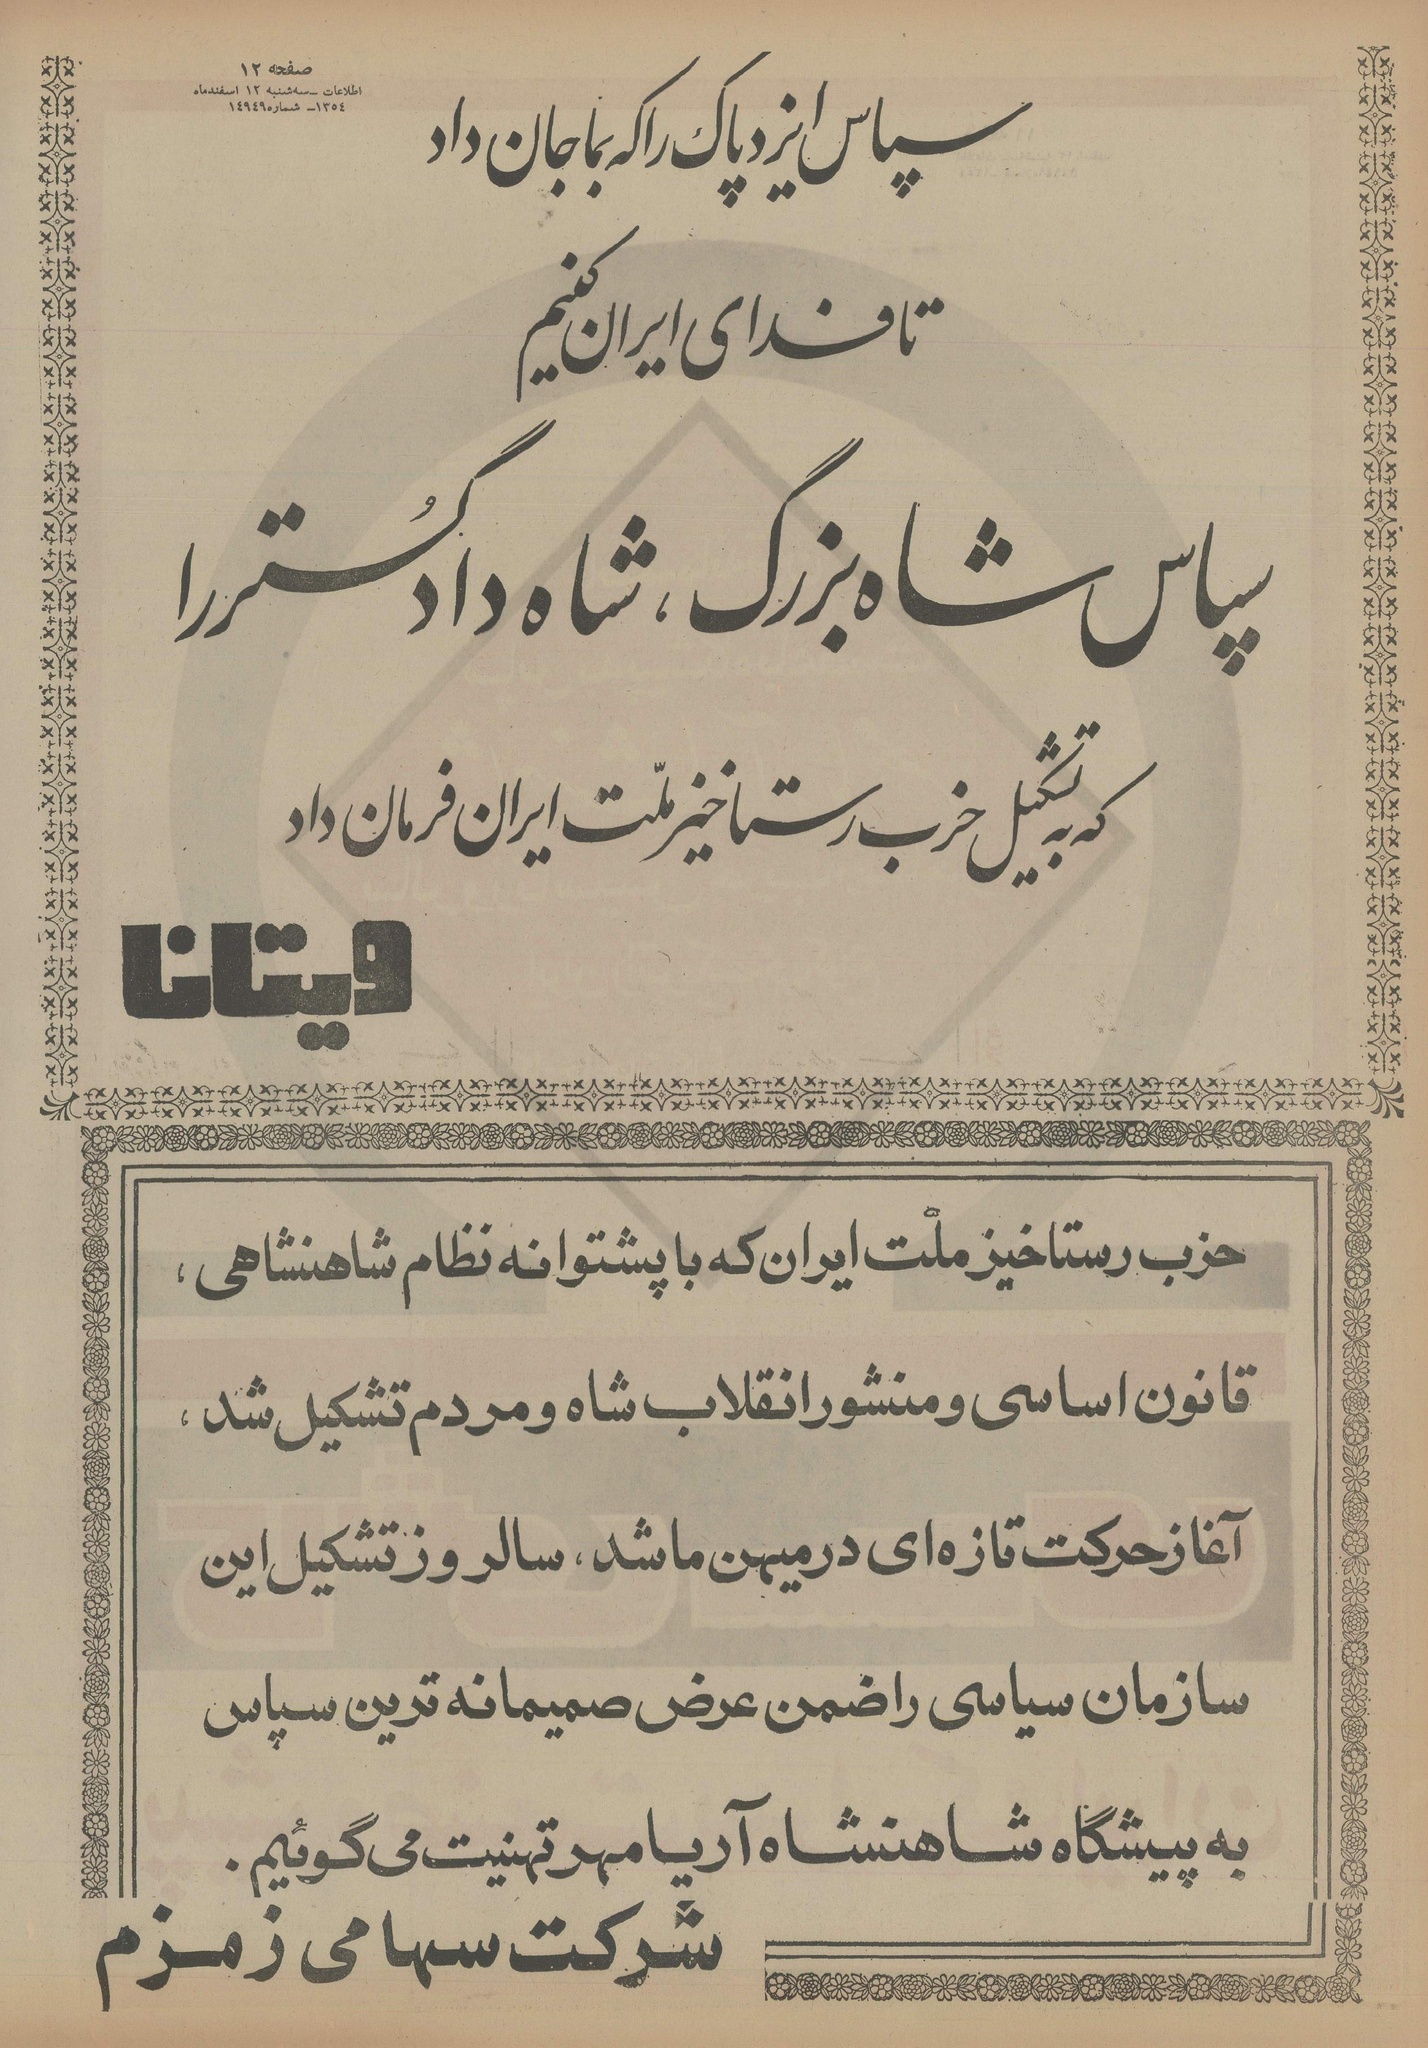 صفحه ۱۲
اطلاعات ـ سه‌شنبه ۱۲ اسفندماه
۱۳۵۴ـ شماره ۱۴۹۴۹
سپاس ایزد پاک را که بما جان داد
تا فدای ایران کنیم
سپاس شاه بزرگ، شاه دادگُستر را
که به تشکیل حزب رستاخیز ملّت ایران فرمان داد
ویتانا
حزب رستاخیز ملّت ایران که با پشتوانه نظام شاهنشاهی،
قانون اساسی و منشور انقلاب شاه و مردم تشکیل شد،
آغاز حرکت تازه‌ای در میهن ما شد، سالروز تشکیل این
سازمان سیاسی را ضمن عرض صمیمانه‌ترین سپاس
به پیشگاه شاهنشاه آریامهر تهنیت می‌گوئیم.
شرکت سهامی زمزم